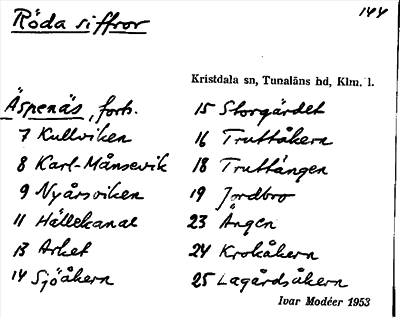 Röda siffror
144
Kristdala sn, Tunaläns hd, Klm. l.
Äspenäs, forts.
7 Kullviken
8 Karl-Månsevik
9 Nyårsviken
11 Hällekanal
13 Arket
14 Sjöåkern
15 Storgärdet
16 Truttåkern
18 Truttängen
19 Jordbro
23 Ängen
24 Krokåkern
25 Lagårdsåkern
Ivar Modéer 1953